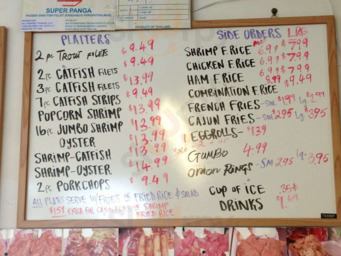 SUPER PANGA
PLATTERS
2 pc TROUT FILETS $9.49
$9.49
2 pc CATFISH FILETS $13.99
3 pc CATFISH FILETS $9.49
7 pc CATFISH STRIPS $13.99
POPCORN SHRIMP $13.99
16 pc JUMBO SHRIMP
OYSTER
SHRIMP-CATFISH
SHRIMP-OYSTER $14.99
2 pc PORKCHOPS $9.49
ALL PLATES SERVE W/ FRIES OR FRIED RICE & SALAD
SHRIMP FRIED RICE
SIDE ORDERS
SHRIMP F.RICE $7.99
CHICKEN F.RICE $7.99
HAM F.RICE $7.99
COMBINATION F.RICE $9.49
FRENCH FRIES
CAJUN FRIES - SM 2.95 Lg 3.95
1 EGGROLLS - $1.39
GUMBO 4.99
ONION RINGS - SM 2.95 Lg 3.95
CUP OF ICE .35¢
DRINKS